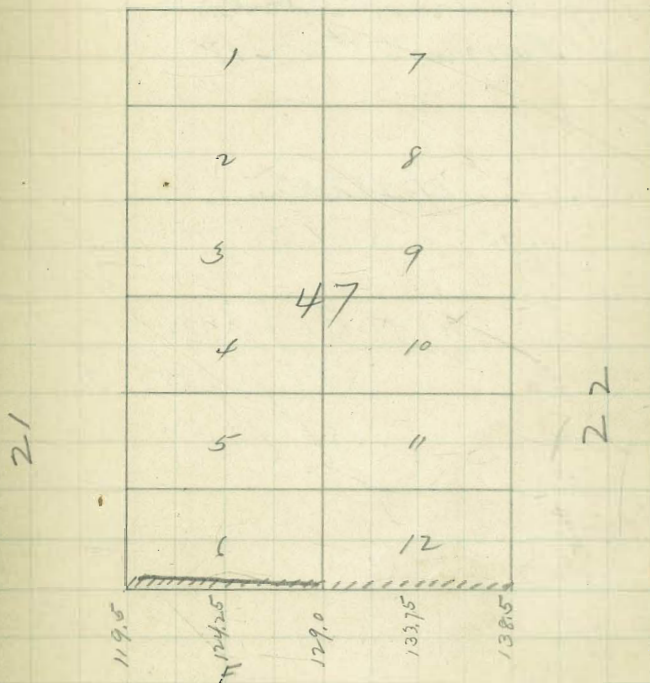 1 7
2 8
3 9
47
4 10
21
22
5 11
6 12
119.5 124.25 129.0 133.75 138.5